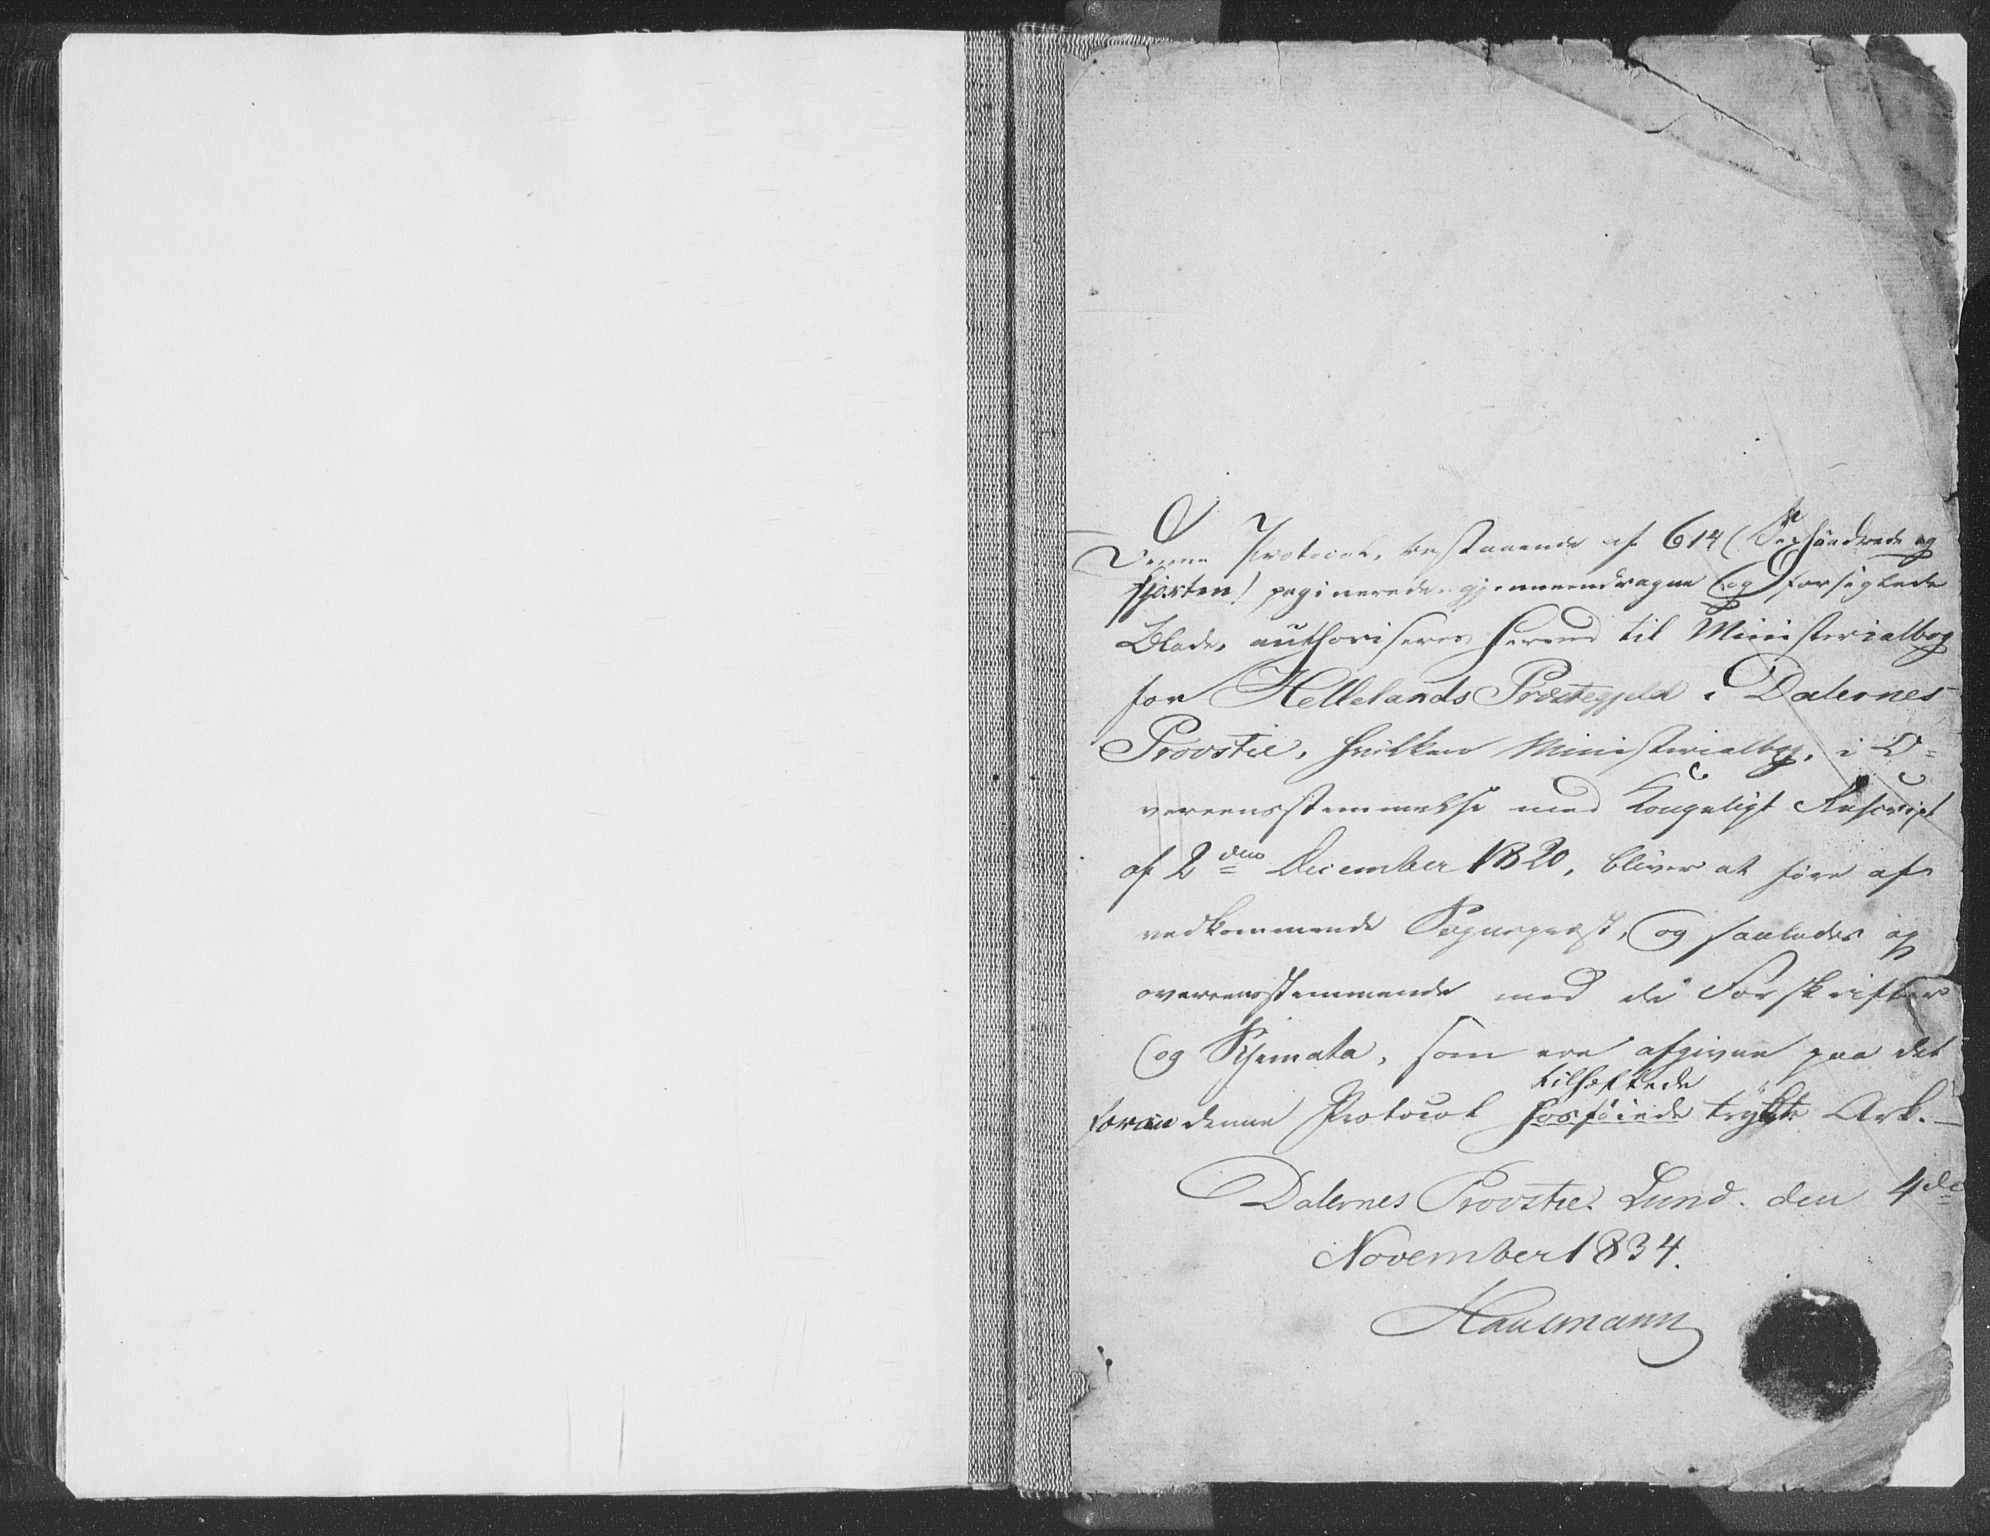 Denne Protocol, bestaaende af 614 (Sexhundrede og
fjorten) paginerede, gjennemdragne og forseglede
Blade, authoriseres herved til Ministerialbog
for Hellelands Præstegjeld i Dalernes
Provstie, hvilken Ministerialbog, i O=
vereensstemmelse med Kongeligt Rescript
af 2den December 1820, bliver at føre af
vedkommende Sognepræst, og saaledes og
overeensstemmende med de Forskrifter
og Schemata, som ere afgivne paa det
tilhæftede
foran denne Protocol hosføiede trykte Ark. —
Dalernes Provstie. Lund. den 4de
November 1834.